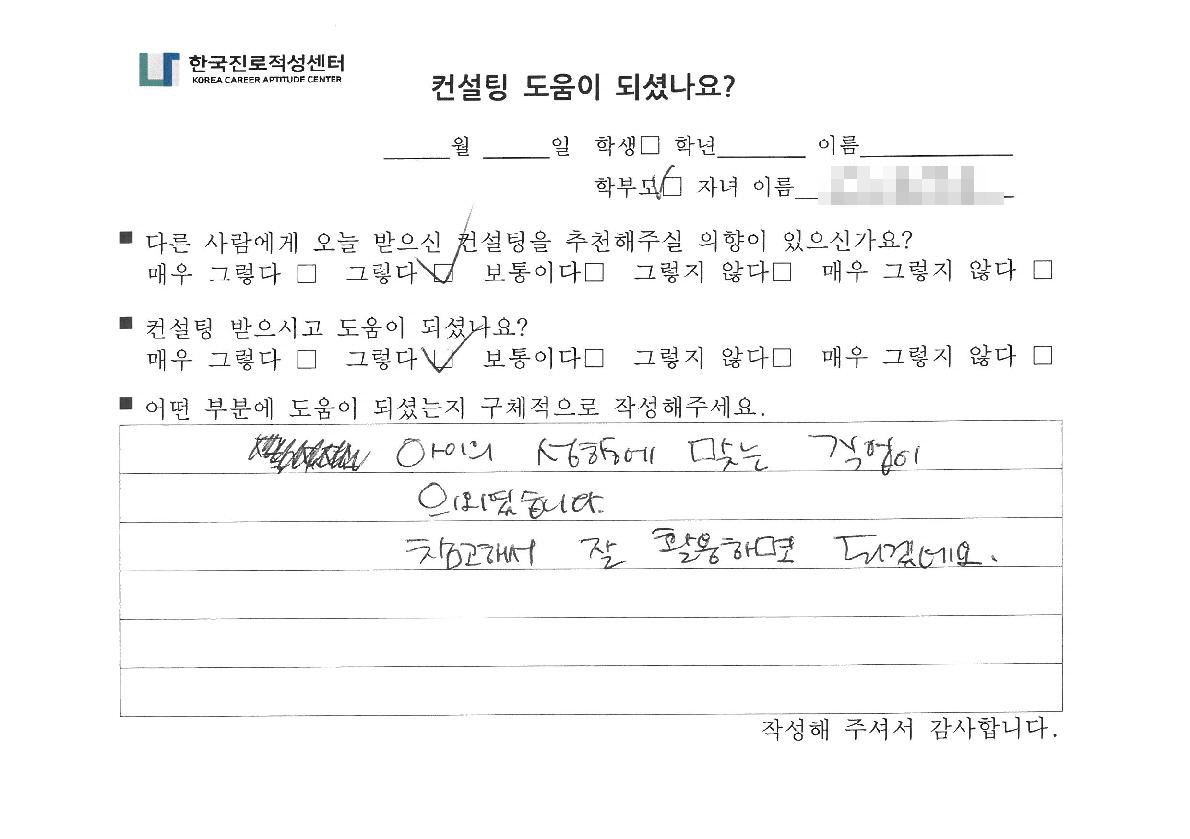 한국진로적성센터
KOREA CAREER APTITUDE CENTER
컨설팅 도움이 되셨나요?
월 일 학생□ 학년 이름
학부모□ 자녀 이름
■ 다른 사람에게 오늘 받으신 컨설팅을 추천해주실 의향이 있으신가요?
매우 그렇다 □ 그렇다 □ 보통이다□ 그렇지 않다□ 매우 그렇지 않다 □
■ 컨설팅 받으시고 도움이 되셨나요?
매우 그렇다 □ 그렇다 □ 보통이다□ 그렇지 않다□ 매우 그렇지 않다 □
■ 어떤 부분에 도움이 되셨는지 구체적으로 작성해주세요.
아이의 성향에 맞는 직업이
의외였습니다.
참고해서 잘 활용하면 되겠네요.
작성해 주셔서 감사합니다.